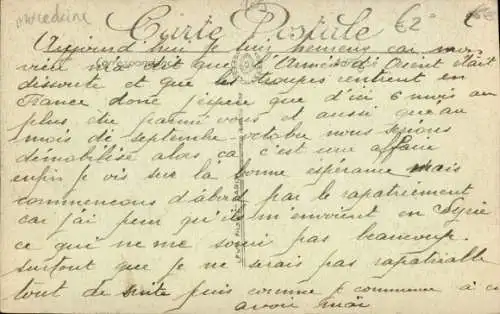 macédoine
€2
Carte Postale
Correspondance
Aujourd'hui je suis heureux car mon
vieux m'a dit que l'Armée d'Orient était
dissoute et que les troupes rentrent en
France donc j'espère que d'ici 6 mois au
plus etre parmi vous et aussi qu'au
mois de septembre-octobre nous serons
démobilisé alors ça c'est une affaire
enfin je vis sur la bonne espérance mais
commencons d'abord par le rapatriement
car j'ai peur qu'ils m'envoient en Syrie
ce qui ne me souri pas beaucoup.
surtout que je ne serais pas rapatriable
tout de suite puis comme je commence à en
avoir